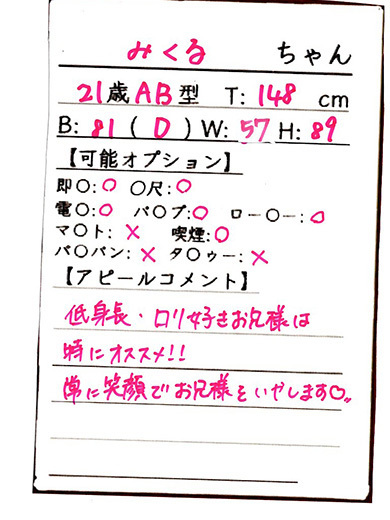 みくる ちゃん
21歳 AB型 T: 148 cm
B: 81 ( D ) W: 57 H: 89
【可能オプション】
即〇:○ 〇尺:○
電〇:○ バ〇ブ:○ ロー〇ー:○
マ〇ト: × 喫煙:○
パ〇パン: × タ〇ゥー: ×
【アピールコメント】
低身長・ロリ好きお兄様は
特にオススメ!!
常に笑顔でお兄様をいやします♡。